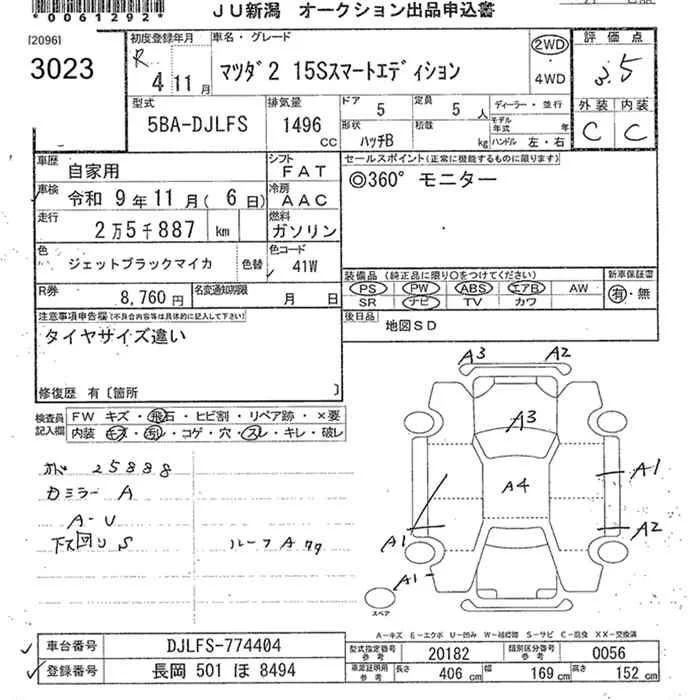 *0061292*
JU新潟 オークション出品申込書
[2096]
3023
初度登録年月
R 4 11月
車名・グレード
マツダ2 15Sスマートエディション
2WD
・
4WD
評価点
3.5
外装 内装
C C
型式
5BA-DJLFS
排気量
1496 CC
ドア 5
定員 5 人
形状 ハッチB
積載 kg
ディーラー・並行
モデル年式 年
ハンドル 左・右
車歴
自家用
シフト
FAT
車検 令和 9年11月( 6日)
冷房
AAC
走行
2万5千887 km
燃料
ガソリン
色
ジェットブラックマイカ
色替
色コード
41W
R券
8,760円
名変通知期限
月 日
セールスポイント(正常に機能するものに限ります)
◎360° モニター
装備品(純正品に限り○をつけてください)
PS PW ABS エアB AW
SR ナビ TV カワ
新車保証書
有・無
後日品
地図SD
注意事項申告欄(不具合内容等は具体的に記入して下さい)
タイヤサイズ違い
修復歴 有〔箇所 〕
検査員記入欄
FW キズ・飛石・ヒビ割・リペア跡・×要
内装 キズ・汚レ・コゲ・穴・スレ・キレ・破レ
オド 25888
カミラー A
A-U
下マ回リS
ルーフA
A3 A2
A3
A4
A1
A2
A1
A1
スペア
A-キズ E-エクボ U-凹み W-補修跡 S-サビ C-腐食 XX-交換済
車台番号
DJLFS-774404
登録番号
長岡 501 ほ 8494
型式指定番号 参考
20182
類別区分番号 参考
0056
車庫証明用 参考
長さ 406 cm
幅 169 cm
高さ 152 cm